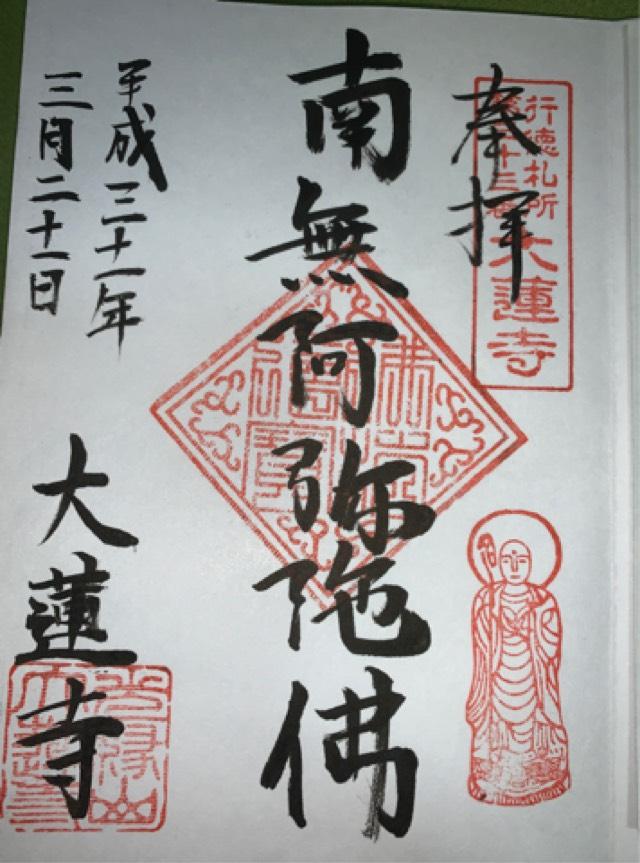 奉拝
行徳札所
大蓮寺
南無阿弥陀佛
平成三十一年
三月二十一日
大蓮寺